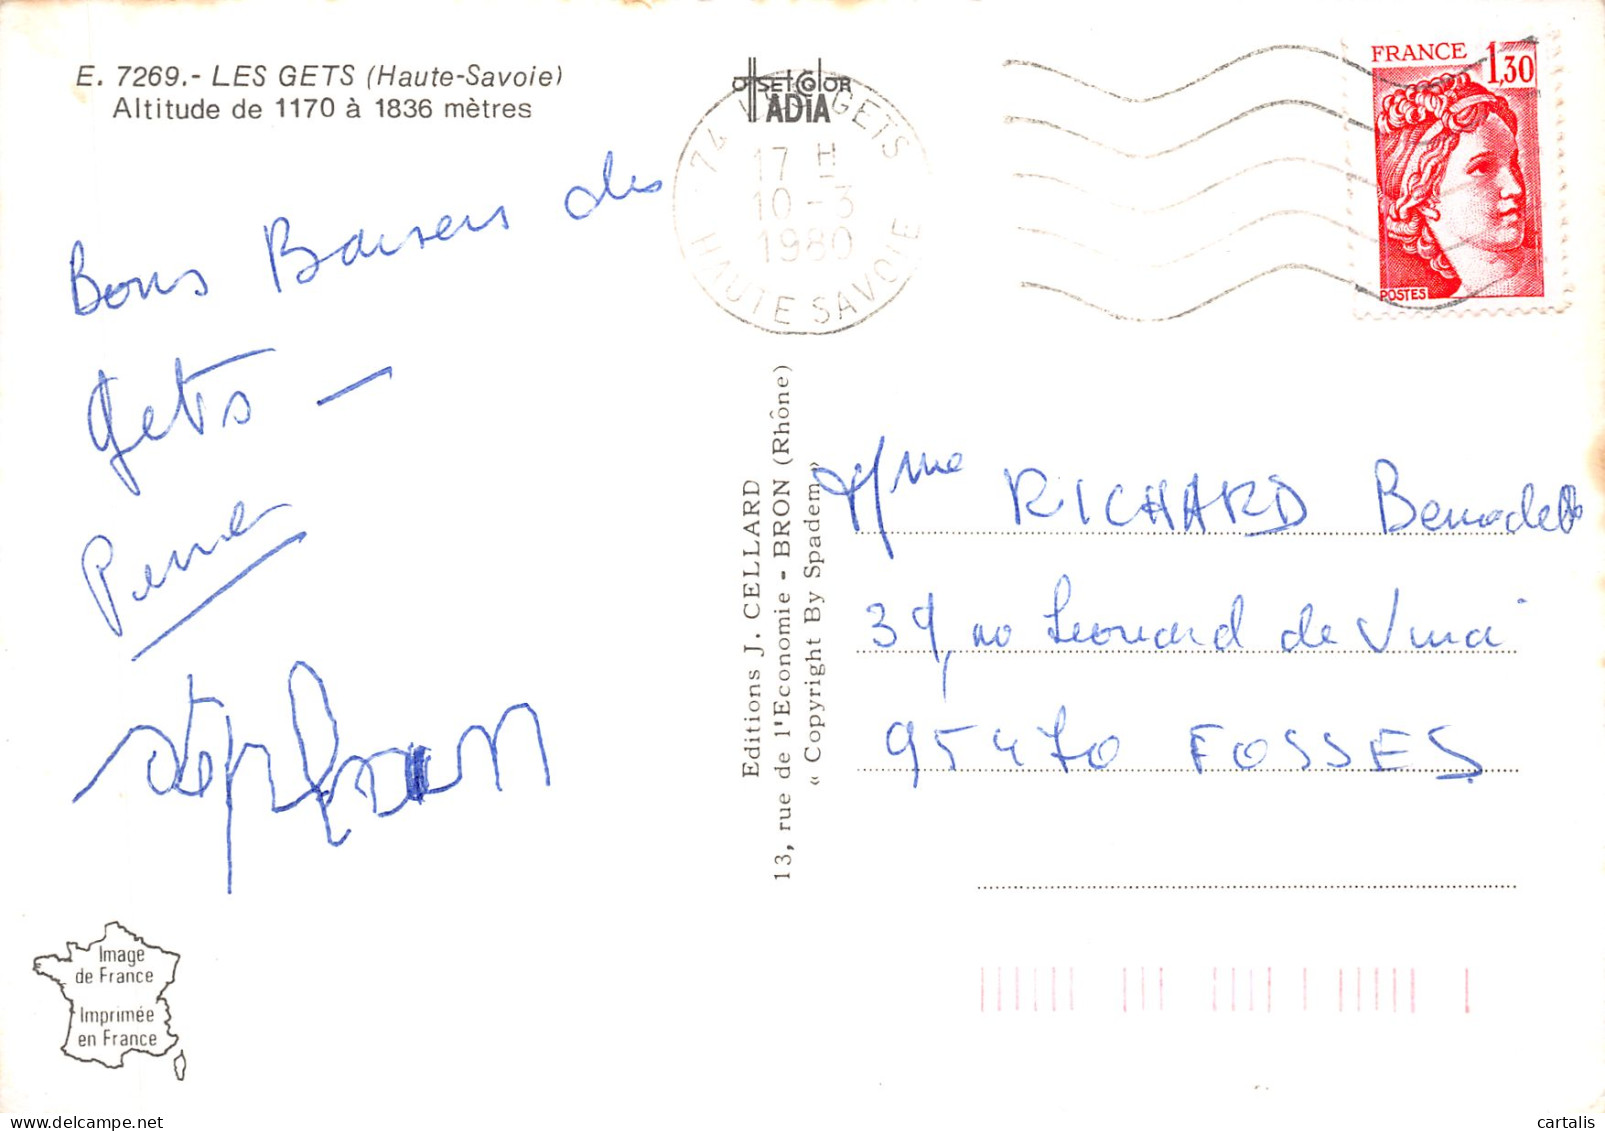 E. 7269.- LES GETS (Haute-Savoie)
Altitude de 1170 à 1836 mètres
offset color
ADIA
74 LES GETS
17 H
10 - 3
1980
HAUTE SAVOIE
FRANCE
1,30
POSTES
Bons Baisers des
Gets -
Stéphan
Editions J. CELLARD
13, rue de l'Economie - BRON (Rhône)
« Copyright By Spadem »
Mme RICHARD Bernadette
39, rue Léonard de Vinci
95470 FOSSES
Image
de France
Imprimée
en France
cartalis